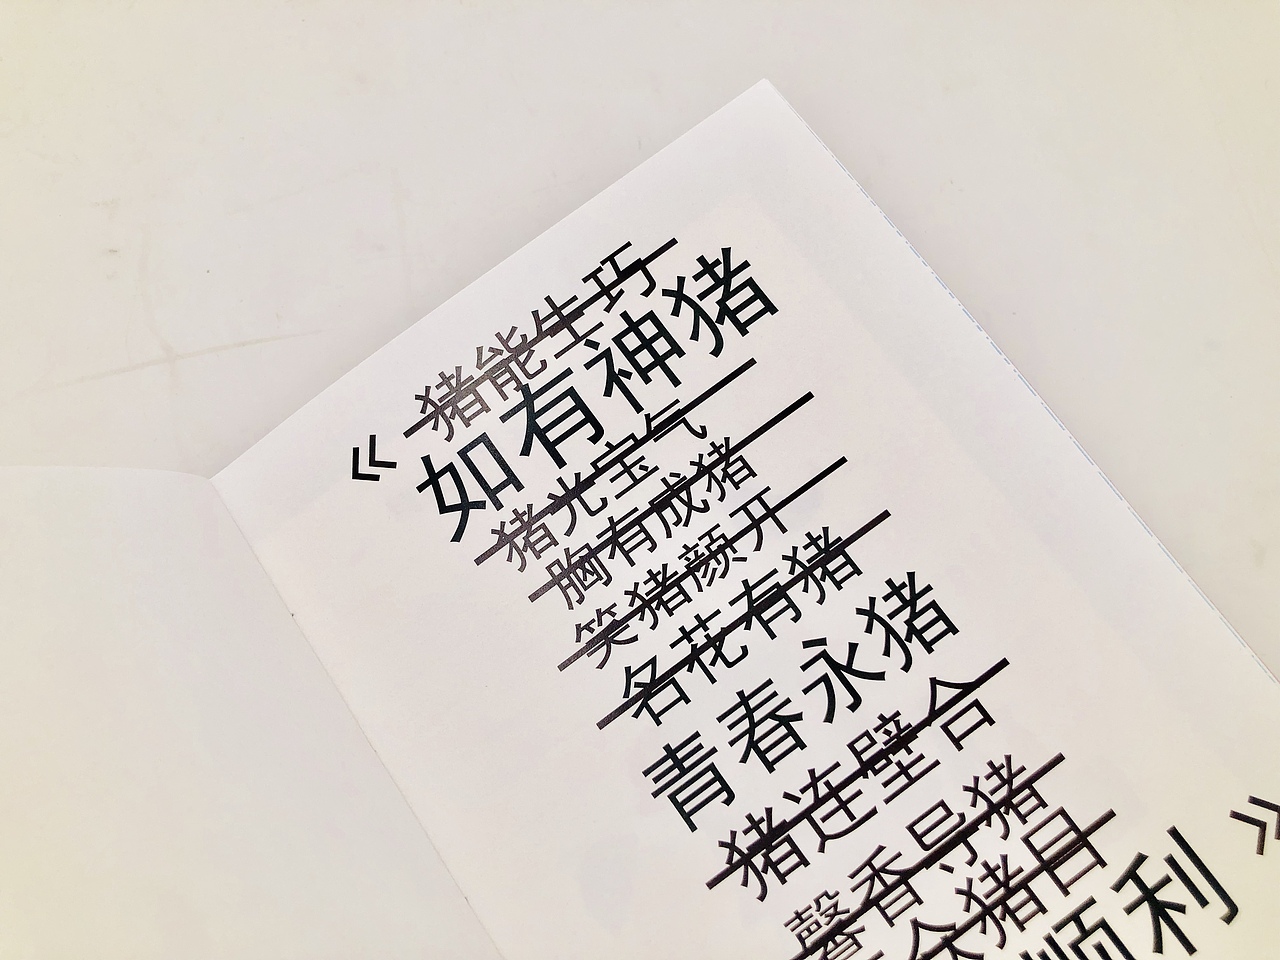 猪能生巧
《如有神猪
猪光宝气
胸有成猪
笑猪颜开
名花有猪
青春永猪
猪连璧合
馨香导猪
众猪目
顺利》